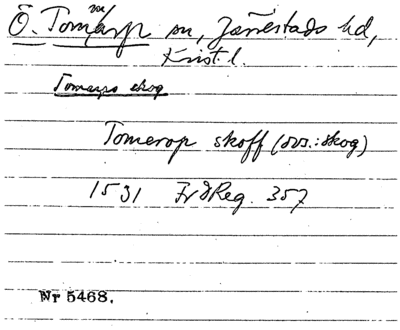 Ö. Tommarp sn, Järrestads hd,
Krist. l.
Tomarps skog
Tomerop skoff (dvs.: skog)
1531 Fr d Reg. 357
Nr 5468.